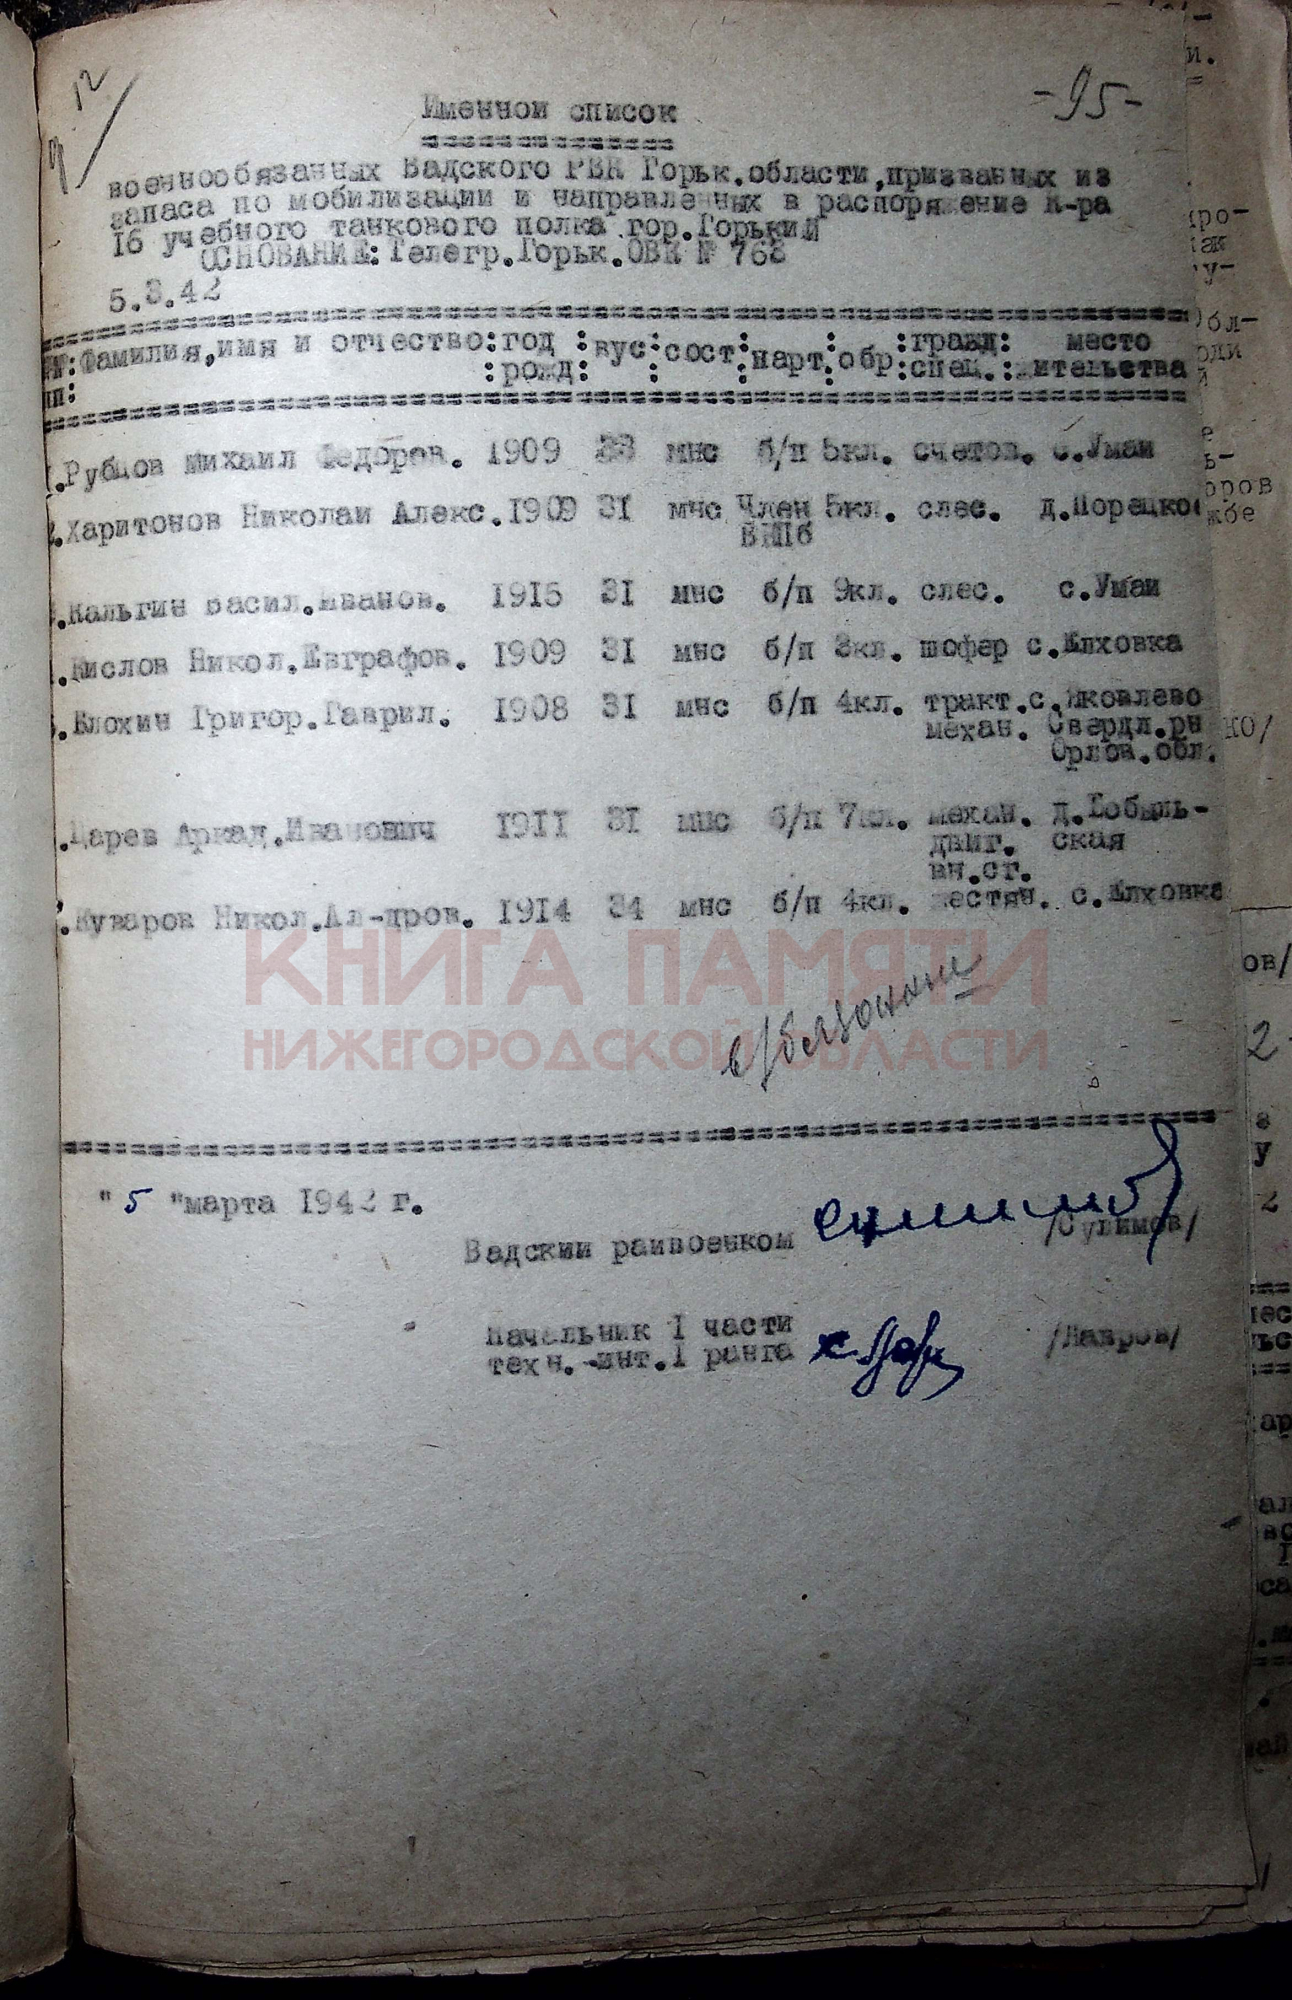 12
-95-
Именной список
военнообязанных Вадского РВК Горьк.области,призванных из
запаса по мобилизации и направленных в распоряжение К-ра
16 учебного танкового полка гор.Горький
ОСНОВАНИЕ: Телегр.Горьк.ОВК № 763
5.3.42
№:Фамилия,имя и отчество:год :вус:сост:парт:обр:гражд: место
пп: :рожд: : : : :спец.:жительства
.Рубцов Михаил Федоров. 1909 33 мнс б/п 5кл. счетов. с.Умаи
.Харитонов Николаи Алекс.1909 31 мнс Член 5кл. слес. д.Порецкое
ВКПб
.Кальгин Васил.Иванов. 1915 31 мнс б/п 9кл. слес. с.Умаи
.Кислов Никол.Евграфов. 1909 31 мнс б/п 3кл. шофер с.Елховка
.Блохин Григор.Гаврил. 1908 31 мнс б/п 4кл. тракт.с.Яковлево
механ. Свердл.рн
Орлов.обл.
.Царев Аркад.Иванович 1911 31 мнс б/п 7кл. механ. д.Бобыль-
двиг. ская
вн.сг.
.Куваров Никол.Ал-дров. 1914 34 мнс б/п 4кл. жестян. с.Елховка
КНИГА ПАМЯТИ
НИЖЕГОРОДСКОЙ ОБЛАСТИ
"5 "марта 1942 г.
Вадский раивоенком /Сулимов/
Начальник 1 части
техн.-инт.1 ранга /Лавров/